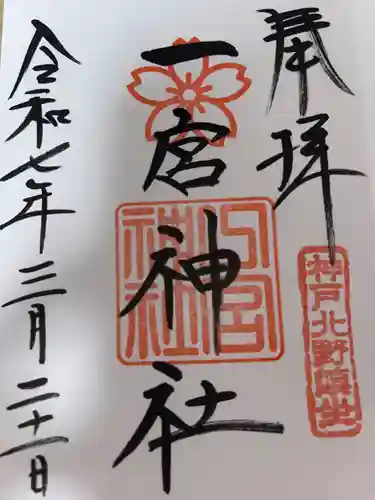 奉拝
神戸北野鎮坐
一宮神社
一宮神社
令和七年三月二十一日